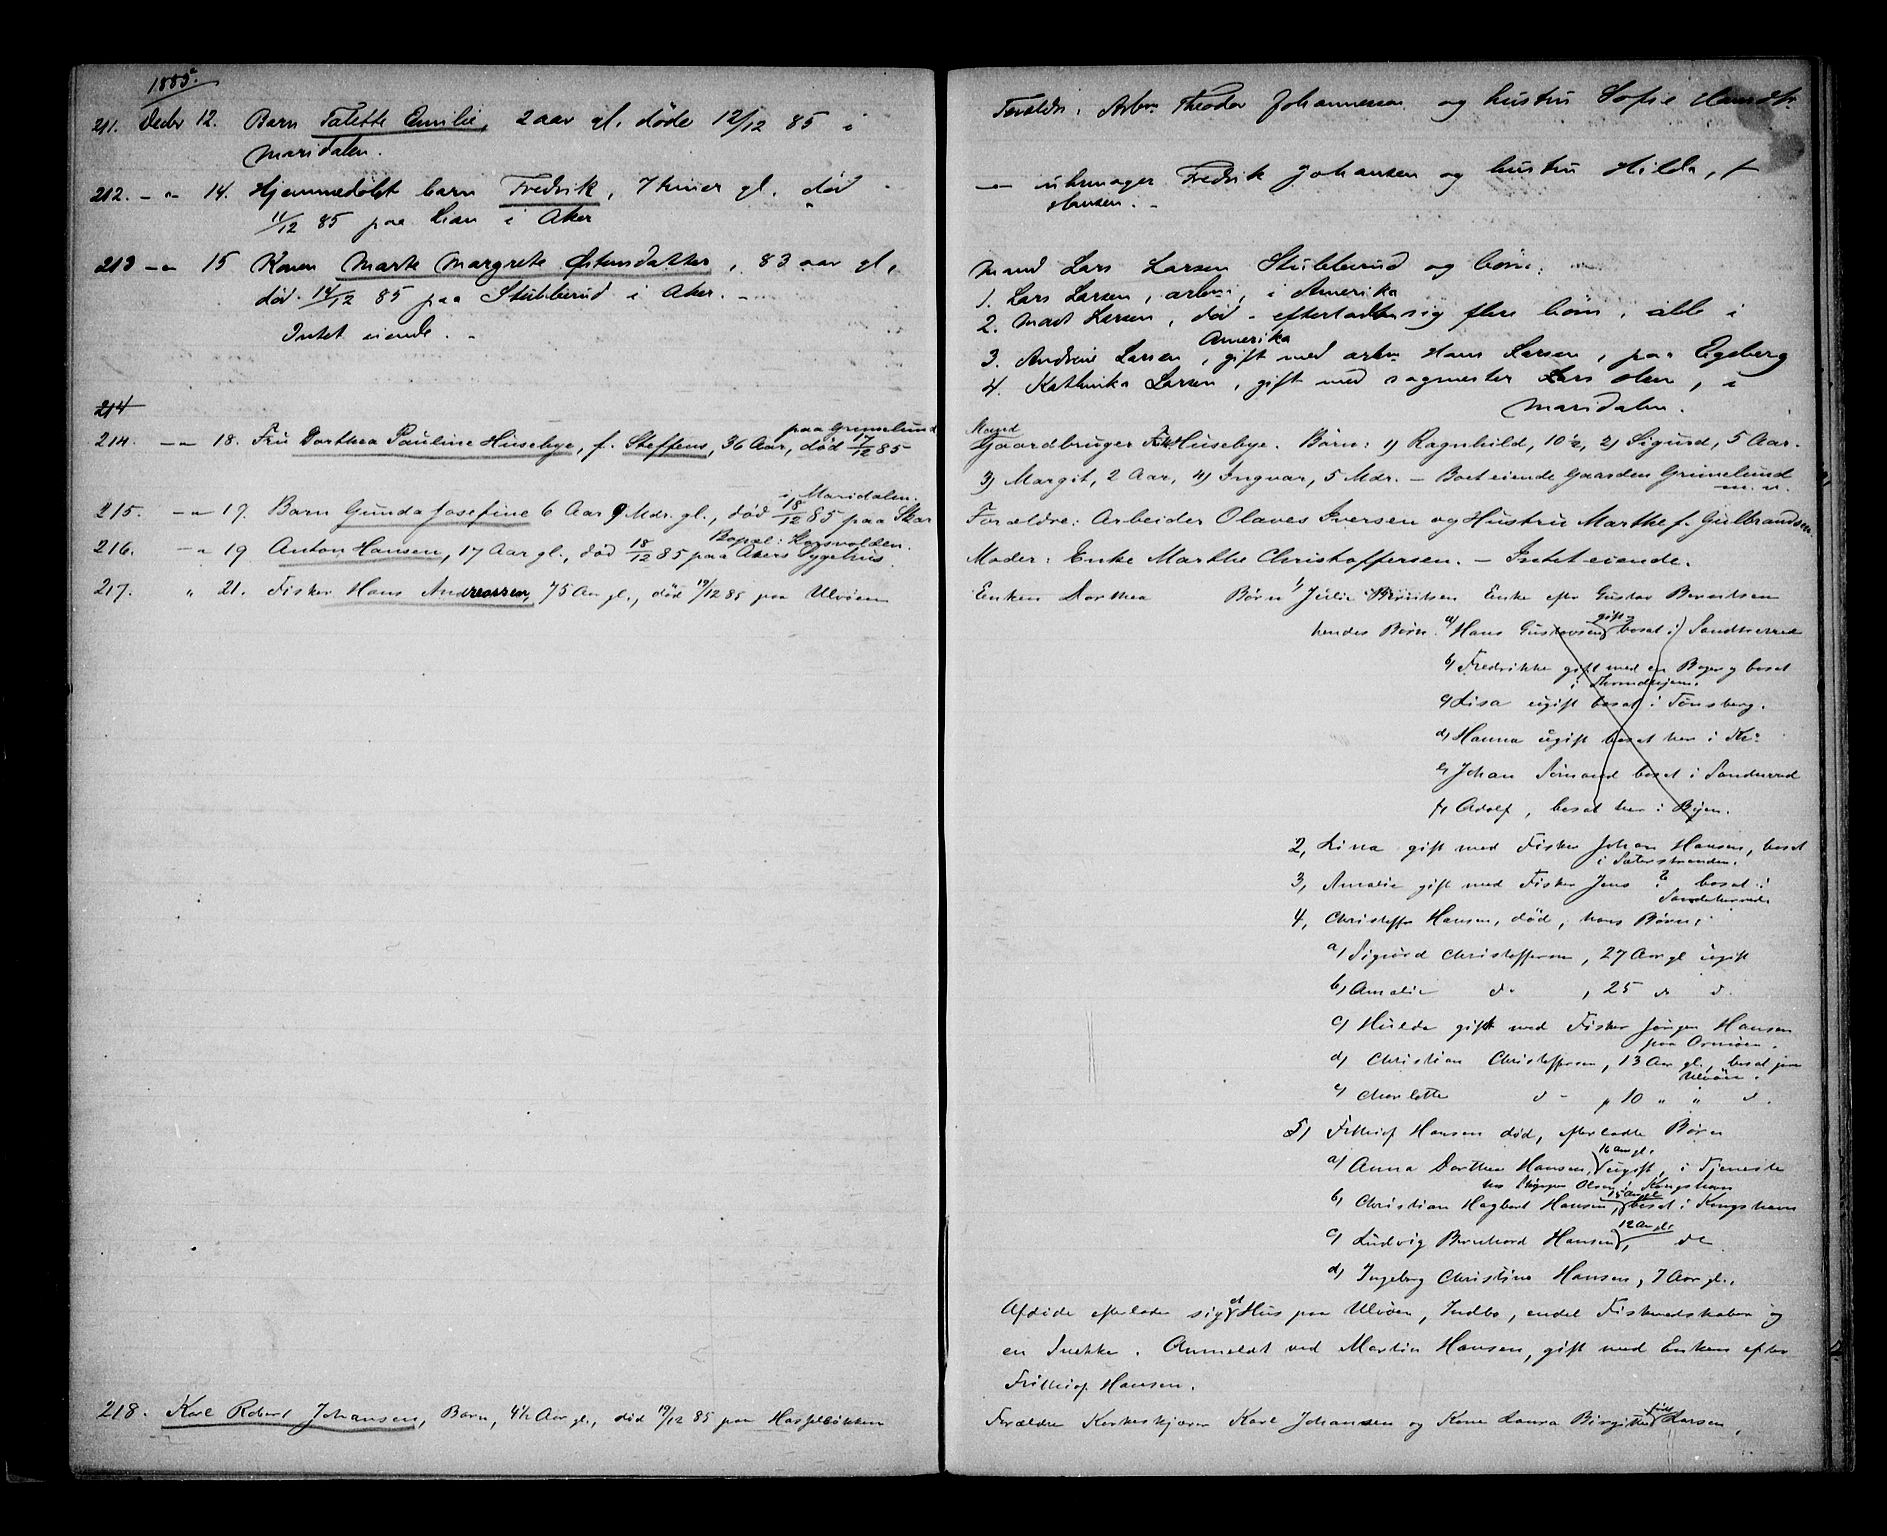 1885.
211. Decbr 12. Barn Talette Emilie, 2 aar gl. døde 12/12 85 i
Maridalen.
212. - " - 14. Hjemmedøbt barn Fredrik, 7 timer gl. død
11/12 85 paa Lian i Aker
213 - " - 15 Konen Marte Margrete Østensdatter, 83 aar gl,
død 14/12 85 paa Stubberud i Aker. -
Intet eiende. -
214
214. - " - 18. Fru Dorthea Pauline Husebye, f. Steffens, 36 Aar, død 17/12 85
paa Grimelund
215. - " - 17. Barn Gunda Josefine 6 Aar 9 Mdr. gl., død 18/12 85 paa Skar
i Maridalen.
216. - " 19 Anton Hansen, 17 Aar gl., død 18/12 85 paa Akers Sygehus.
Bopæl: Korsvolden.
217. " 21. Fisker Hans Andreassen, 75 Aar gl., død 19/12 85 paa Ulvøen
218. Karl Robert Johansen, Barn, 4½ Aar gl., død 19/12 85 paa Hasselbakken
Forældre: Arbm Theodor Johannesen og hustru Sofie
- " - uhrmager Fredrik Johansen og hustru Hilda, f
Hansen. -
Mand Lars Larsen Stubberud og børn:
1. Lars Larsen, arbm, i Amerika
2. Mart Larsen, død - efterladt sig flere børn, alle i
Amerika
3. Andrine Larsen, gift med arbm Hans Larsen, paa Egeberg
4. Kathinka Larsen, gift med sagmester Lars Olsen, i
Maridalen.
Mand
Gaardbruger Husebye. Børn: 1) Ragnhild, 10½, 2) Sigurd, 5 Aar.
3) Margit, 2 Aar, 4) Ingvar, 5 Mdr. - Boet eiende Gaarden Grimelund
m. v.
Forældre: Arbeider Olaves Iversen og Hustru Marthe f. Gulbrandsen.
Moder: Enke Marthe Christoffersen. - Intet eiende.
Enken Dorthea Børn 1) Julie Berntsen Enke efter Gustav Berntsen
hendes Børn: a) Hans Gustavsen gift bosat i Sandherred
b) Fredrikke gift med en Bager bosat
i Throndhjem.
c) Lisa ugift bosat i Tønsberg.
d) Hanna ugift bosat her i Kra
e) Johan Sømand bosat i Sandherred
f) Adolf, bosat her i Byen.
2, Lina gift med Fisker Johan Hansen, bosat
3, Amalie gift med Fisker Jens ? bosat i
Sandeherred.
4, Christoffer Hansen, død, hans Børn:
a) Sigurd Christoffersen, 27 Aar gl ugift
b) Amalie do , 25 do d.
c) Hulda gift med Fisker Jørgen Hansen
paa Ormøen.
d) Christian Christoffersen, 13 Aar gl., bosat paa
Ulvøen.
e) Charlotte d - , 10 " " d.
5) Frithiof Hansen død, efterladte Børn
a) Anna Dorthea Hansen, 16 Aar gl. ugift, i Tjeneste
hos Olsen i Kongshavn
b) Christian Hagbart Hansen, 15 Aar gl bosat i Kongshavn
c) Ludvig Bernhard Hansen, 12 Aar gl. do
d) Ingeborg Christine Hansen, 7 Aar gl.,
Afdøde efterlader sig et Hus paa Ulvøen, Indbo, endel Fiskeredskaber og
en Snekke. Anmeldt ved Martin Hansen, gift med Enken efter
Frithiof Hansen.
Forældre Kjører Karl Johansen og Kone Laura Birgitte født Larsen,